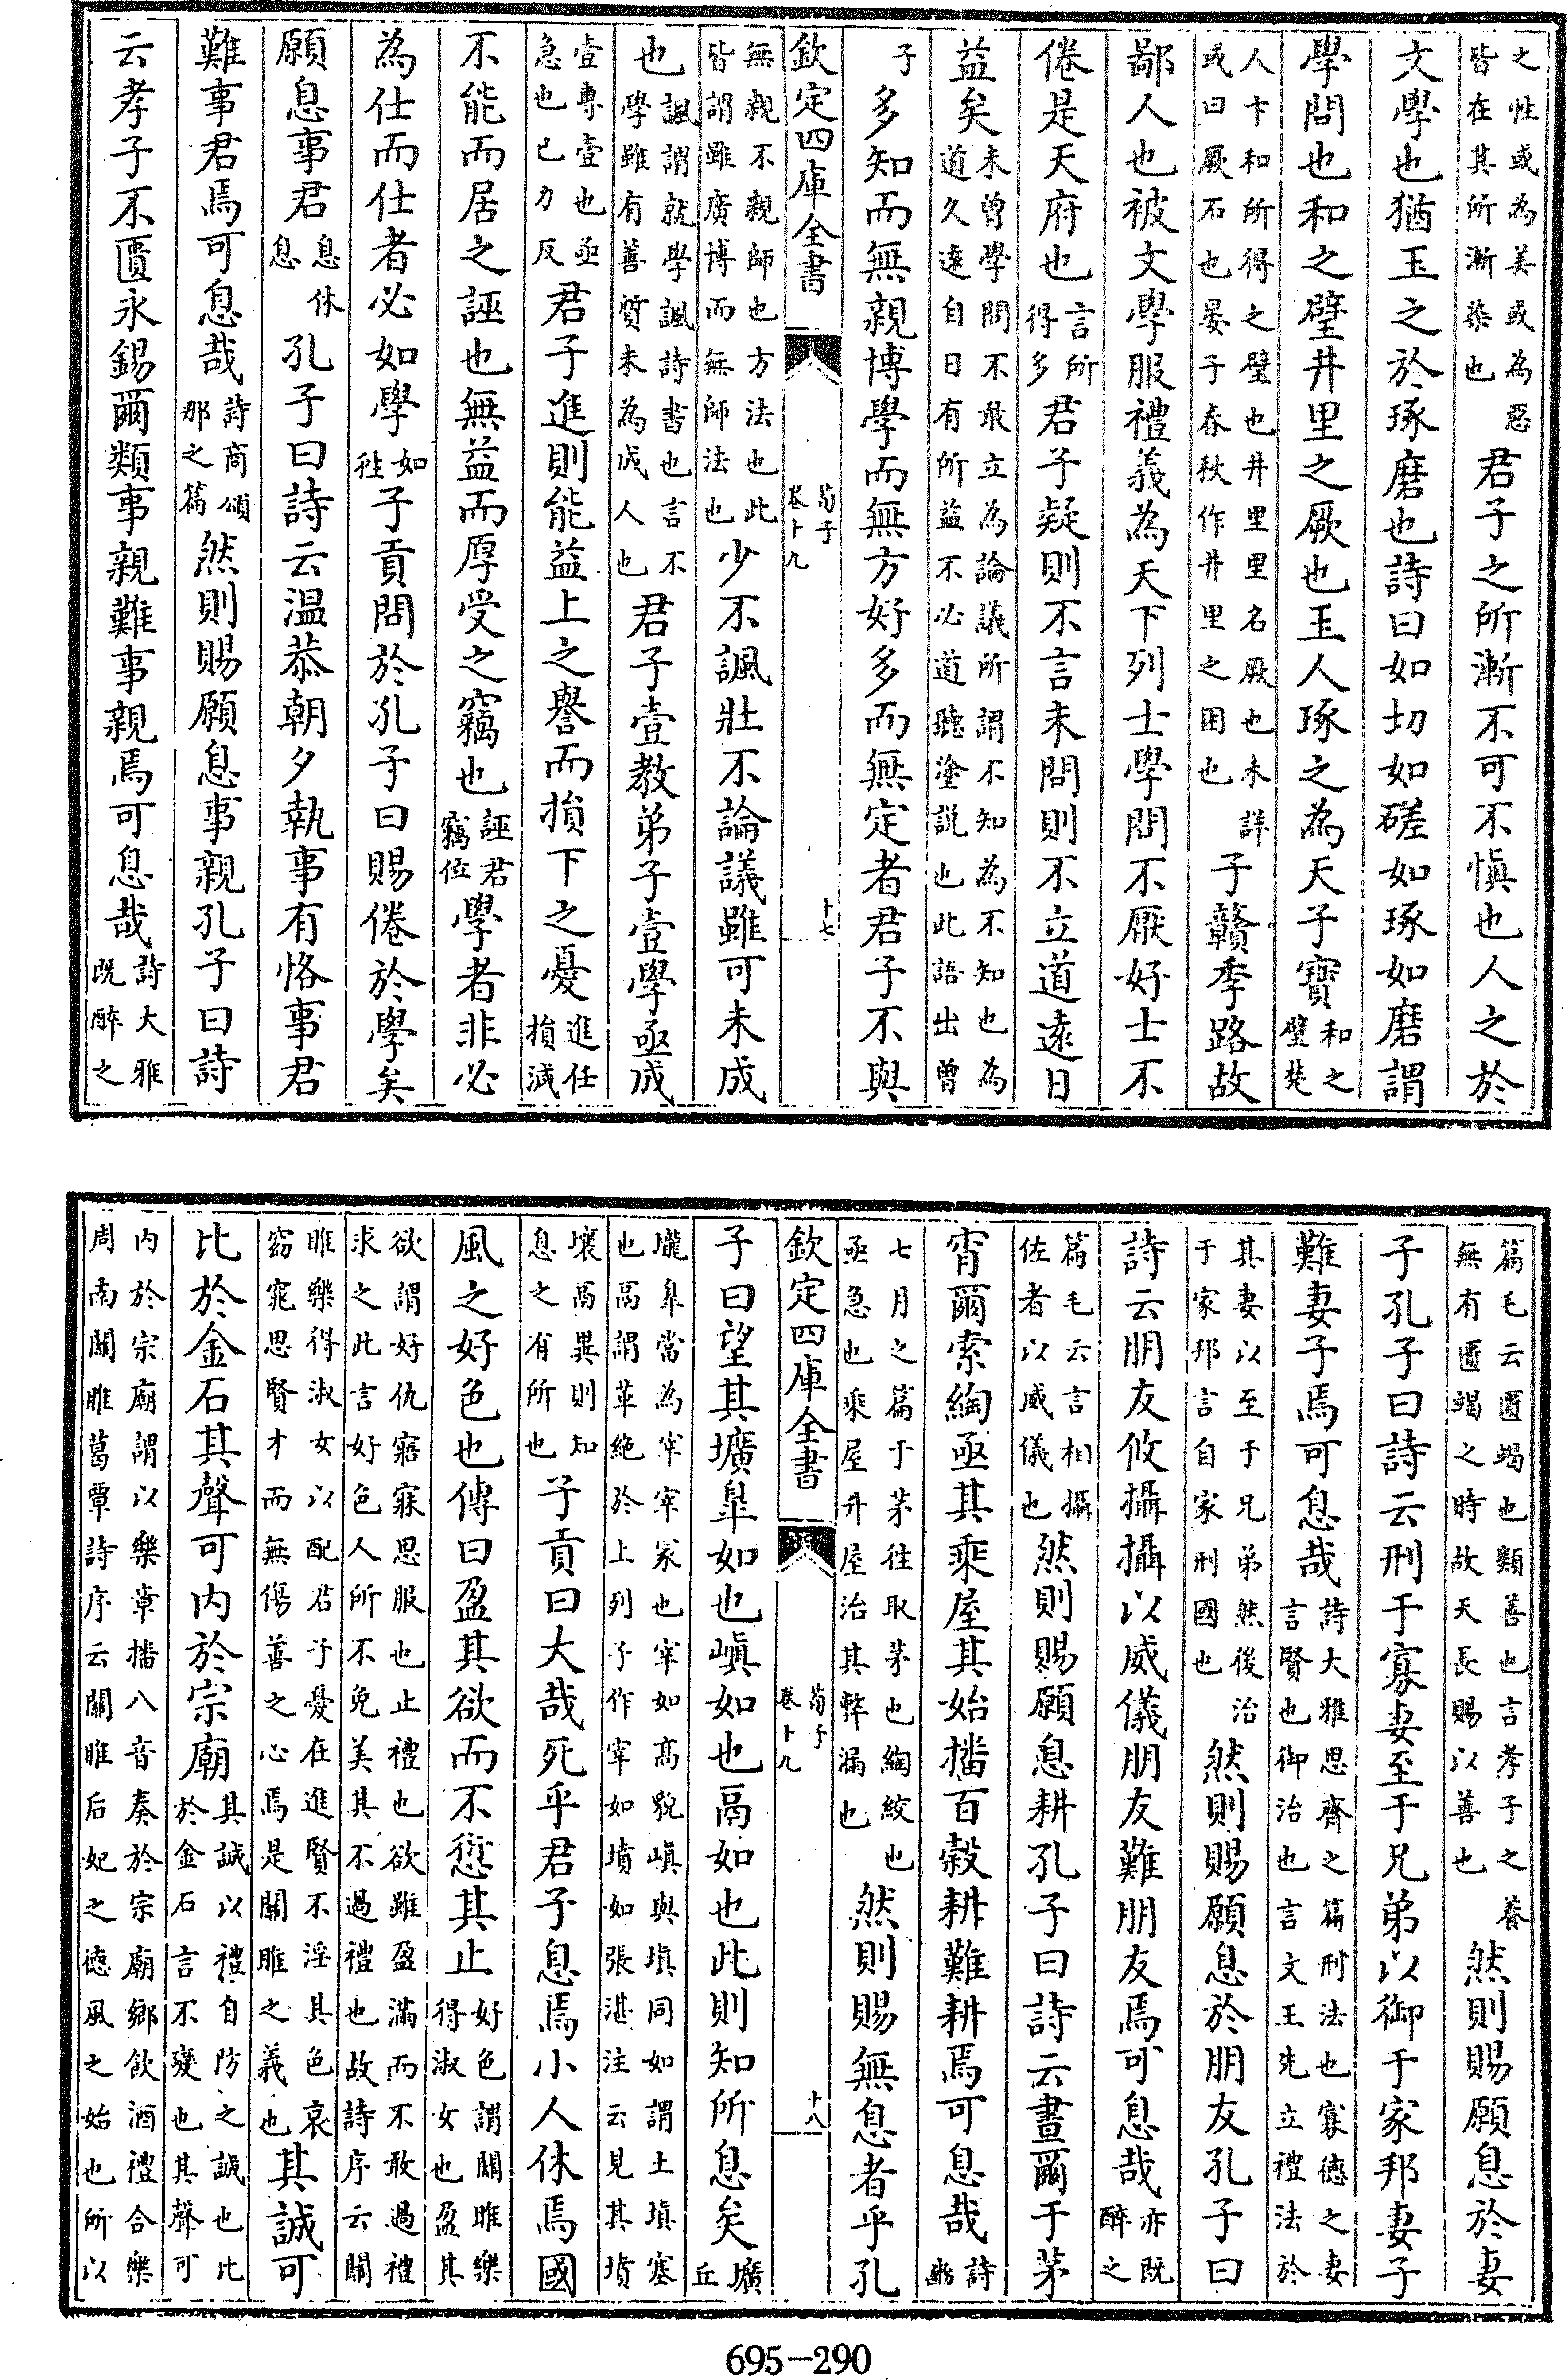 之性或為美或為惡皆在其所漸染也君子之所漸不可不慎也人之於
文學也猶玉之於琢磨也詩曰如切如磋如琢如磨謂
學問也和之璧井里之厥也玉人琢之為天子寶和之璧楚
人卞和所得之璧也井里里名厥也未詳或曰厥石也晏子春秋作井里之困也子贛季路故
鄙人也被文學服禮義為天下列士學問不厭好士不
倦是天府也言所得多君子疑則不言未問則不立道遠日
益矣未曾學問不敢立為論議所謂不知為不知也為道久遠自日有所益不必道聽塗説也此語出曾
子多知而無親博學而無方好多而無定者君子不與
欽定四庫全書 荀子卷十九 十七
無親不親師也方法也此皆謂雖廣博而無師法也少不諷壯不論議雖可未成
也諷謂就學諷詩書也言不學雖有善質未為成人也君子壹教弟子壹學亟成
壹專壹也亟急也已力反君子進則能益上之譽而損下之憂進任損減
不能而居之誣也無益而厚受之竊也誣君竊位學者非必
為仕而仕者必如學如徃子貢問於孔子曰賜倦於學矣
願息事君息休息孔子曰詩云温恭朝夕執事有恪事君
難事君焉可息哉詩商頌那之篇然則賜願息事親孔子曰詩
云孝子不匱永錫爾類事親難事親焉可息哉詩大雅既醉之
篇毛云匱竭也類善也言孝子之養無有匱竭之時故天長賜以善也然則賜願息於妻
子孔子曰詩云刑于寡妻至于兄弟以御于家邦妻子
難妻子焉可息哉詩大雅思齊之篇刑法也寡德之妻言賢也御治也言文王先立禮法於
其妻以至于兄弟然後治于家邦言自家刑國也然則賜願息於朋友孔子曰
詩云朋友攸攝攝以威儀朋友難朋友焉可息哉亦既醉之
篇毛云言相攝佐者以威儀也然則賜願息耕孔子曰詩云晝爾于茅
宵爾索綯亟其乘屋其始播百穀耕難耕焉可息哉詩豳
七月之篇于茅徃取茅也綯絞也亟急也乘屋升屋治其弊漏也然則賜無息者乎孔
欽定四庫全書 荀子卷十九 十八
子曰望其壙皐如也嵮如也鬲如也此則知所息矣壙丘
壠皐當為宰宰冢也宰如髙貌嵮與填同如謂土填塞也鬲謂革絶於上列子作宰如墳如張湛注云見其墳
壤鬲異則知息之有所也子貢曰大哉死乎君子息焉小人休焉國
風之好色也傳曰盈其欲而不愆其止好色謂關雎樂得淑女也盈其
欲謂好仇寤寐思服也止禮也欲雖盈滿而不敢過禮求之此言好色人所不免美其不過禮也故詩序云關
雎樂得淑女以配君子憂在進賢不淫其色哀窈窕思賢才而無傷善之心焉是關雎之義也其誠可
比於金石其聲可内於宗廟其誠以禮自防之誠也比於金石言不變也其聲可
内於宗廟謂以樂章播八音奏於宗廟鄉飲酒禮合樂周南關雎葛覃詩序云關雎后妃之德風之始也所以
695-290